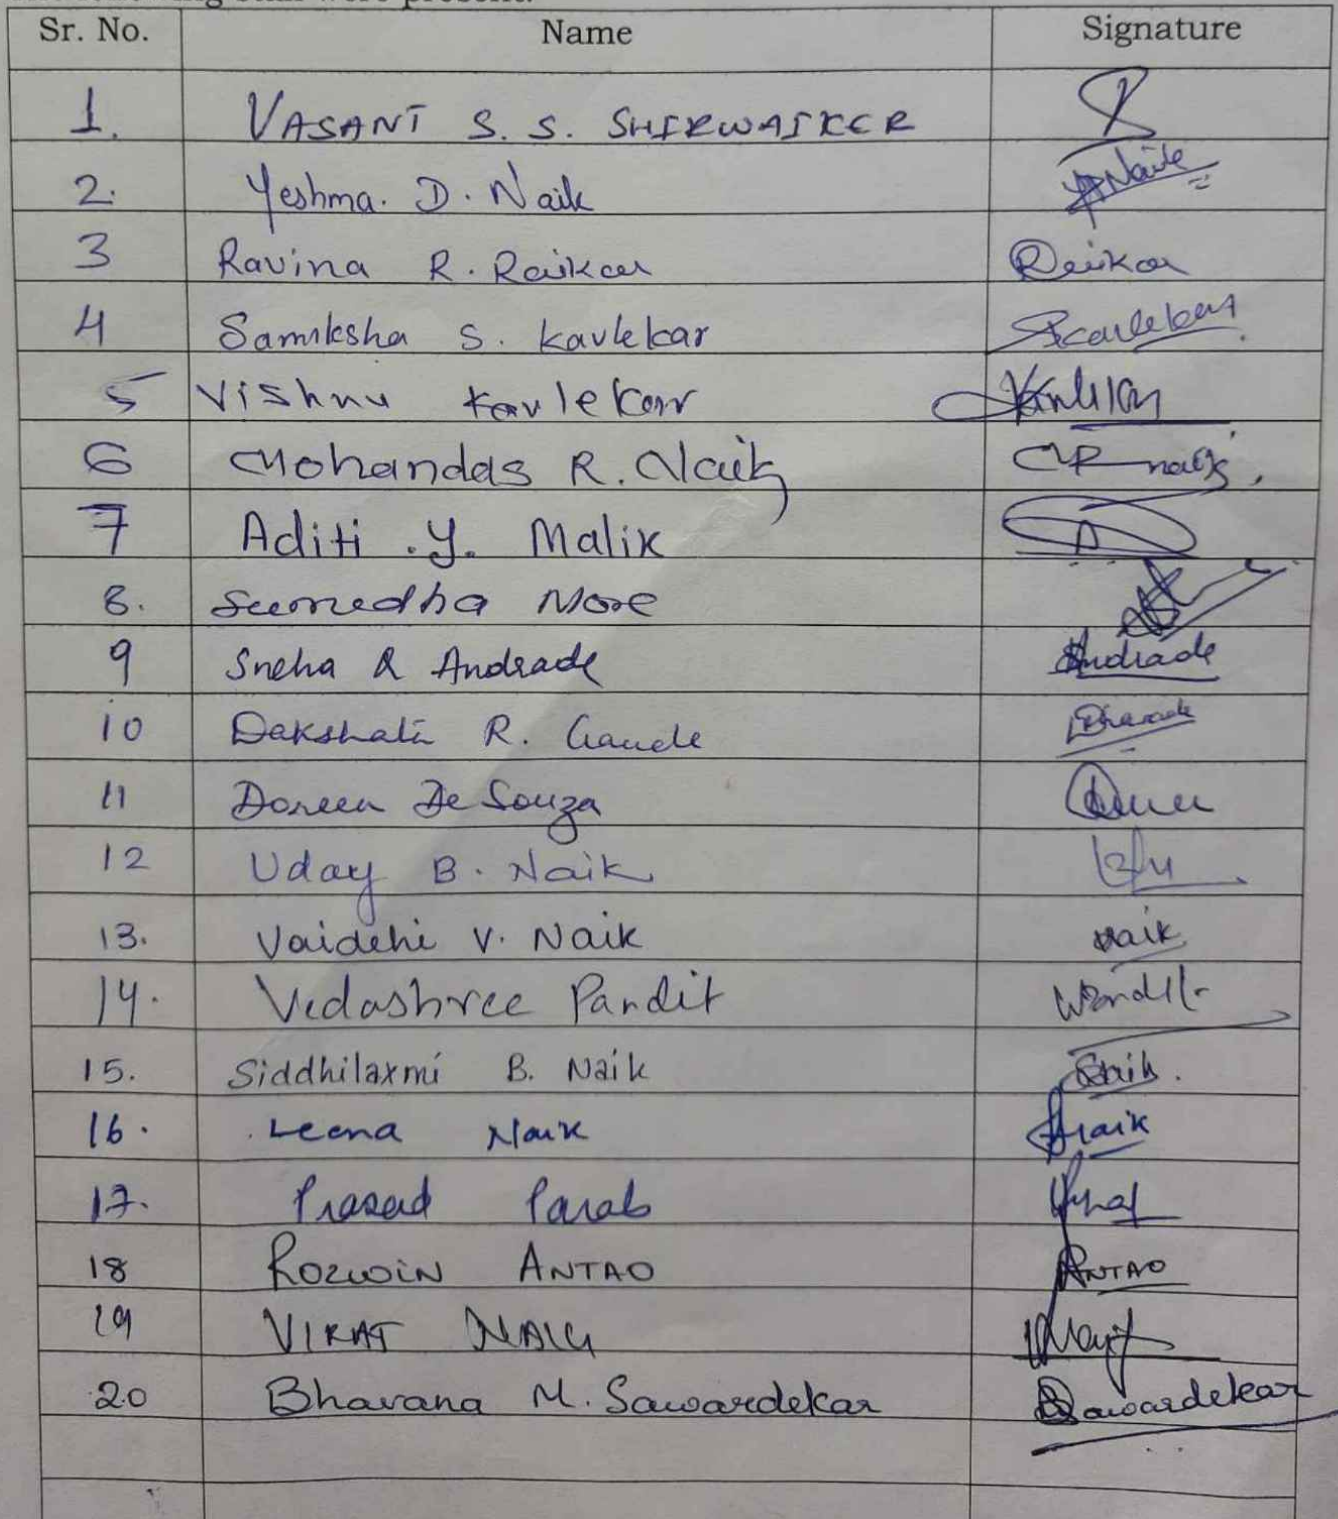 following staff were present.
Sr. No. Name Signature
1. VASANT S. S. SHIRWAIKER
2. Yeshma. D. Naik Naik
3 Ravina R. Raikar Raikar
4 Samiksha S. Kavlekar Skavlekar
5 Vishnu Kavlekar
6 Mohandas R. Naik MR naik
7 Aditi .Y. Malik A
8. Sumedha More
9 Sneha R Andrade Andrade
10 Dakshata R. Gaude
11 Doreen De Souza
12 Uday B. Naik
13. Vaidehi V. Naik Naik
14. Vedashree Pandit
15. Siddhilaxmi B. Naik Naik.
16. Leena Naik Naik
17. Prasad Parab
18 ROZWIN ANTAO ANTAO
19 VIRAT NAIK
20 Bhavana M. Sawardekar Sawardekar